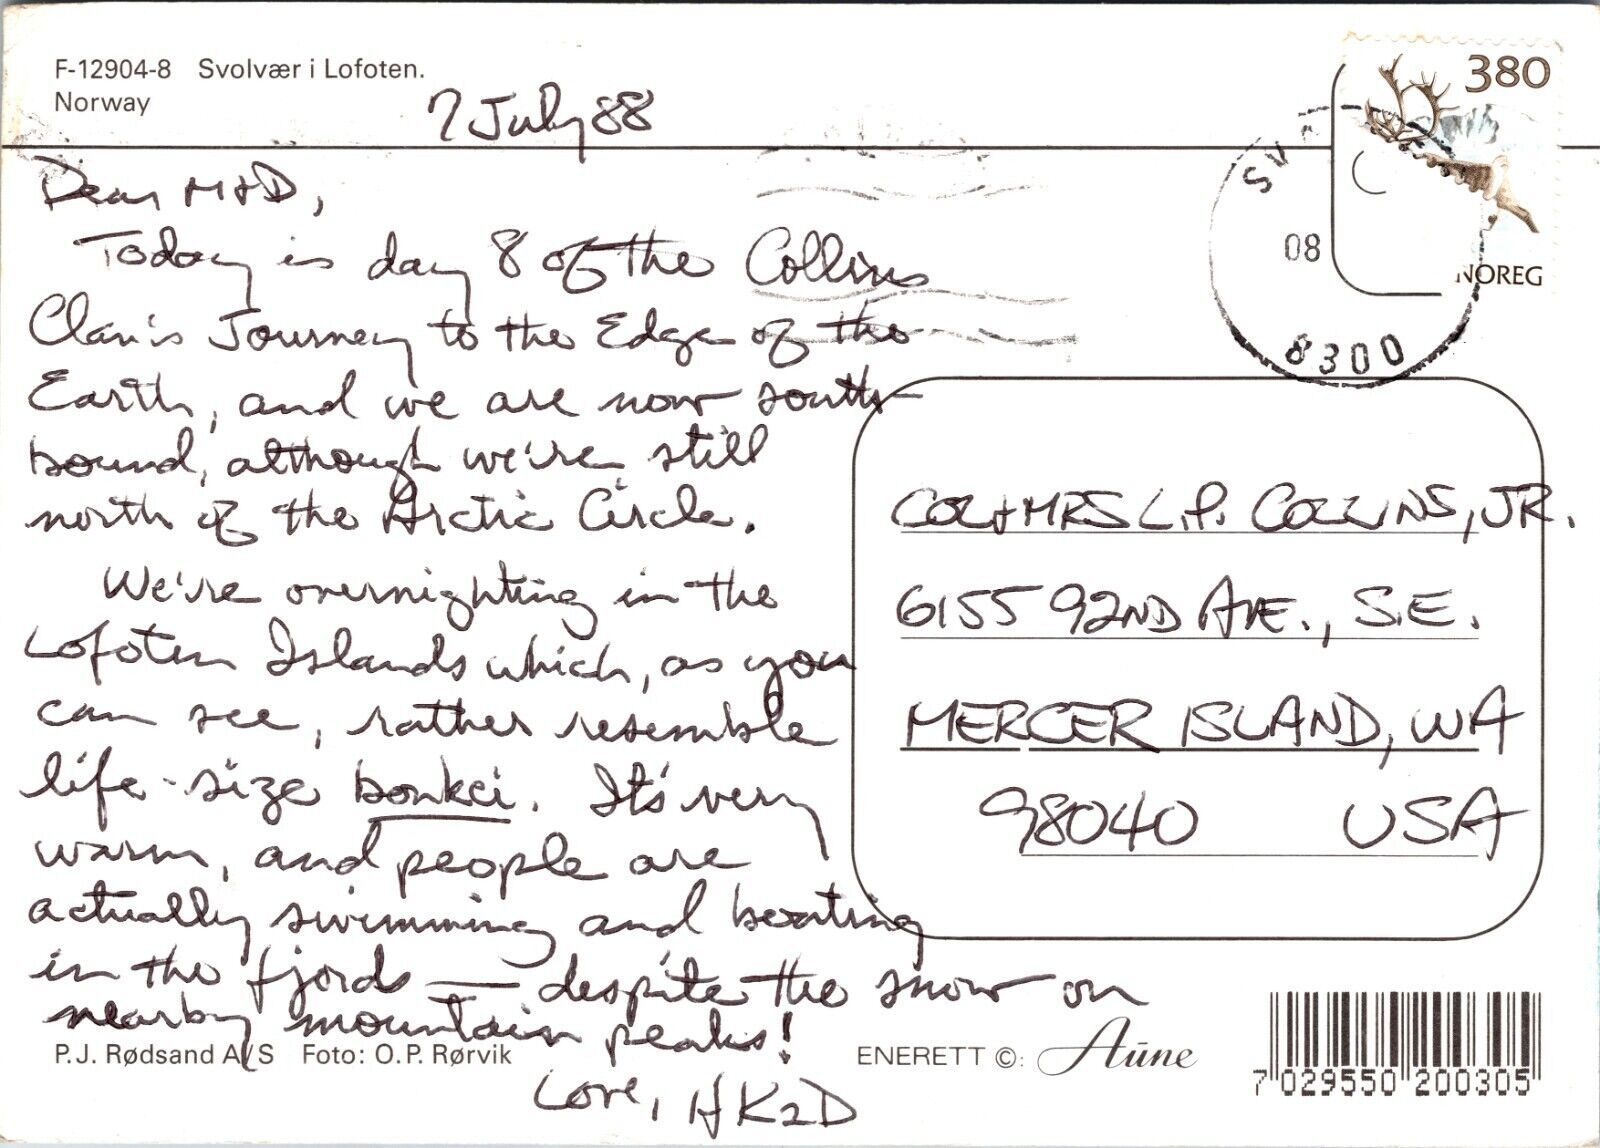 F-12904-8 Svolvær i Lofoten.
Norway
7 July 88
380
NOREG
08
8300
Dear M+D,
Today is day 8 of the Collins
Clan's Journey to the Edge of the
Earth, and we are now south-
bound, although we're still
north of the Arctic Circle.
We're overnighting in the
Lofoten Islands which, as you
can see, rather resemble
life-size bonkei. It's very
warm, and people are
actually swimming and boating
in the fjords — despite the snow on
nearby mountain peaks!
Love, HK2D
COL+MRS L.P. COLLINS, JR.
6155 92ND AVE., S.E.
MERCER ISLAND, WA
98040 USA
P.J. Rødsand A/S Foto: O.P. Rørvik
ENERETT ©: Aūne
7 029550 200305